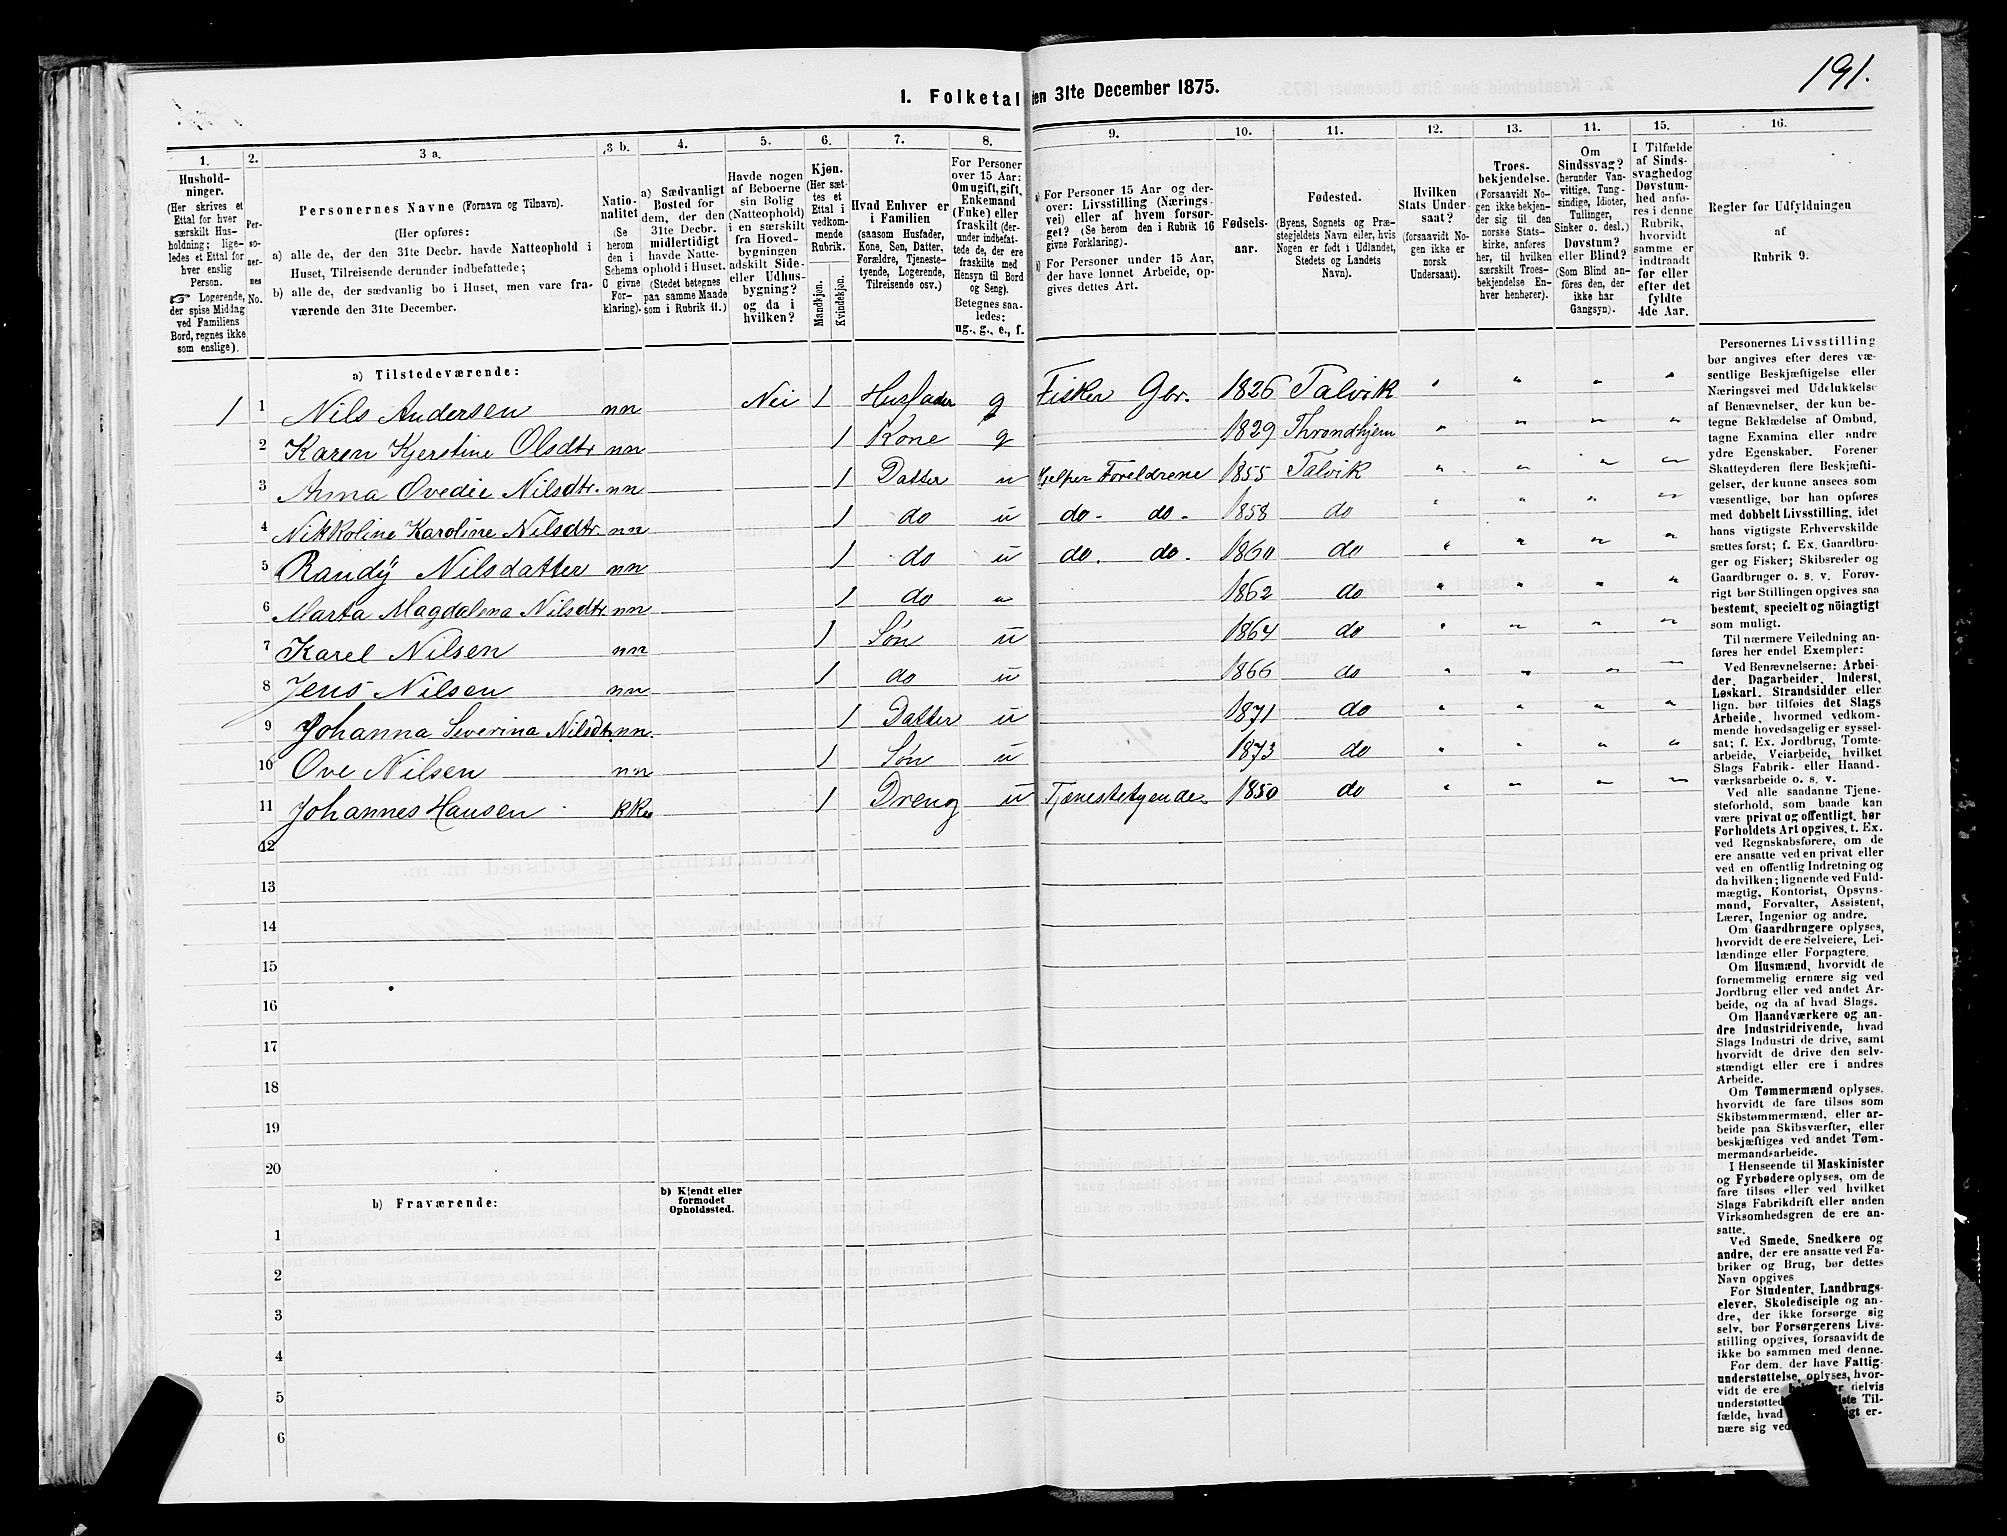 191.
1. Folketal den 31te December 1875.
1. 2. 3 a. 3 b. 4. 5. 6. 7. 8. 9. 10. 11. 12. 13. 14. 15. 16.
Hushold-
ninger.
(Her skrives et
Ettal for hver
særskilt Hus-
holdning; lige-
ledes et Ettal for
hver enslig
Person.
☞ Logerende,
der spise Middag
ved Familiens
Bord, regnes ikke
som enslige).
Per-
so-
ner-
nes
No.
Personernes Navne (Fornavn og Tilnavn).
(Her opføres:
a) alle de, der den 31te Decbr. havde Natteophold i
Huset, Tilreisende derunder indbefattede;
b) alle de, der sædvanlig bo i Huset, men vare fra-
værende den 31te December.
Natio-
nalitet
(Se
herom
den i
Schema
C givne
For-
klaring).
a) Sædvanligt
Bosted for
dem, der den
31te Decbr.
midlertidigt
havde Natte-
ophold i Huset.
(Stedet betegnes
paa samme Maade
som i Rubrik 11.)
Havde nogen
af Beboerne
sin Bolig
(Natteophold)
i en særskilt
fra Hoved-
bygningen
adskilt Side-
eller Udhus-
bygning?
og da i
hvilken?
Kjøn.
(Her sæt-
tes et
Ettal i
vedkom-
mende
Rubrik.
Mandkjøn.
Kvindekjøn.
Hvad Enhver er
i Familien
(saasom Husfader,
Kone, Søn, Datter,
Forældre, Tjeneste-
tyende, Logerende,
Tilreisende osv.)
For Personer
over 15 Aar:
Om ugift, gift,
Enkemand
(Enke) eller
fraskilt (der-
under indbefat-
tede de, der ere
fraskilte med
Hensyn til Bord
og Seng).
Betegnes saa-
ledes:
ug., g., e., f.
a) For Personer 15 Aar og der-
over: Livsstilling (Nærings-
vei) eller af hvem forsør-
get? (Se herom den i Rubrik 16
givne Forklaring).
b) For Personer under 15 Aar,
der have lønnet Arbeide, op-
gives dettes Art.
Fødsels-
aar.
Fødested.
(Byens, Sognets og Præ-
stegjeldets Navn eller, hvis
Nogen er født i Udlandet,
Stedets og Landets
Navn).
Hvilken
Stats Under-
saat?
(forsaavidt No-
gen ikke er
norsk
Undersaat).
Troes-
bekjendelse.
(Forsaavidt No-
gen ikke bekjen-
der sig til den
norske Stats-
kirke, anføres
her, til hvilken
særskilt Troes-
bekjendelse En-
hver henhører).
Om
Sindssvag?
(herunder Van-
vittige, Tung-
sindige, Idioter,
Tullinger,
Sinker o. desl.)
Døvstum?
eller Blind?
(Som Blind an-
føres den, der
ikke har
Gangsyn).
I Tilfælde
af Sinds-
svaghed og
Døvstum-
hed anfø-
res i denne
Rubrik,
hvorvidt
samme er
indtraadt
før eller
efter det
fyldte
4de Aar.
Regler for Udfyldningen
af
Rubrik 9.
a) Tilstedeværende:
1 1 Nils Andersen nn Nei 1 Husfader g Fisker Gbr. 1826 Talvik " " " "
2 Karen Kjerstine Olsdtr nn 1 Kone g 1829 Throndhjem " " " "
3 Anna Ovedie Nilsdtr. nn 1 Datter u hjelper Foreldrene 1855 Talvik " " " "
4 Nikkoline Karoline Nilsdtr. nn 1 do u do. do. 1858 do " " " "
5 Randÿ Nilsdatter nn 1 do u do. do. 1860 do " " " "
6 Marta Magdalena Nilsdtr. nn 1 do u 1862 do " " " "
7 Karel Nilsen nn 1 Søn u 1864 do " " " "
8 Jens Nilsen nn 1 do u 1866 do " " " "
9 Johanna Severina Nilsdtr nn. 1 Datter u 1871 do " " " "
10 Ove Nilsen nn 1 Søn u 1873 do " " " "
11 Johannes Hansen kk 1 Dreng u Tjenestetyende 1850 do " " " "
12
13
14
15
16
17
18
19
20
b) Fraværende:
b) Kjendt eller
formodet
Opholdssted.
1
2
3
4
5
6
Personernes Livsstilling
bør angives efter deres væ-
sentlige Beskjæftigelse eller
Næringsvei med Udelukkelse
af Benævnelser, der kun be-
tegne Beklædelse af Ombud,
tagne Examina eller andre
ydre Egenskaber. Forener
Skatteyderen flere Beskjæfti-
gelser, der kunne ansees som
væsentlige, bør han opføres
med dobbelt Livsstilling, idet
hans vigtigste Erhvervskilde
sættes først; f. Ex. Gaardbru-
ger og Fisker; Skibsreder og
Gaardbruger o. s. v. Forøv-
rigt bør Stillingen opgives saa
bestemt, specielt og nöiagtigt
som muligt.
Til nærmere Veiledning an-
føres her endel Exempler:
Ved Benævnelserne: Arbei-
der, Dagarbeider, Inderst,
Løskarl, Strandsidder eller
lign. bør tilføies det Slags
Arbeide, hvormed vedkom-
mende hovedsagelig er syssel-
sat; f. Ex. Jordbrug, Tomte-
arbeide, Veiarbeide, hvilket
Slags Fabrik- eller Haand-
værksarbeide o. s. v.
Ved alle saadanne Tjene-
steforhold, som baade kan
være privat og offentligt, bør
Forholdets Art opgives, t. Ex.
ved Regnskabsførere, om de
ere ansatte ved en privat eller
ved en offentlig Indretning og
da hvilken; lignende ved Fuld-
mægtig, Kontorist, Opsyns-
mand, Forvalter, Assistent,
Lærer, Ingeniør og andre.
Om Gaardbrugere oplyses,
hvorvidt de ere Selveiere, Lei-
lændinge eller Forpagtere.
Om Husmænd, hvorvidt de
fornemmelig ernære sig ved
Jordbrug eller ved andet Ar-
beide, og da af hvad Slags.
Om Haandværkere og an-
dre Industridrivende, hvad
Slags Industri de drive, samt
hvorvidt de drive den selv-
stændigt eller ere i andres
Arbeide.
Om Tømmermænd oplyses,
hvorvidt de fare tilsøs som
Skibstømmermænd, eller ar-
beide paa Skibsværfter, eller
beskjæftiges ved andet Tøm-
mermandsarbeide.
I Henseende til Maskinister
og Fyrbødere oplyses, om de
fare tilsøs eller ved hvilket
Slags Fabrikdrift eller anden
Virksomhedsgren de ere an-
satte.
Ved Smede, Snedkere og
andre, der ere ansatte ved Fa-
briker og Brug, bør dettes
Navn opgives
For Studenter, Landbrugs-
elever, Skoledisciple og an-
dre, der ikke forsørge sig
selv, bør Forsørgerens Livs-
stilling opgives, forsaavidt de
ikke bo sammen med denne.
For dem, der have Fattig-
understøttelse, oplyses, hvor-
vidt de ere delvis
understøttede Til-
fælde, hvad er-
nære sig ved